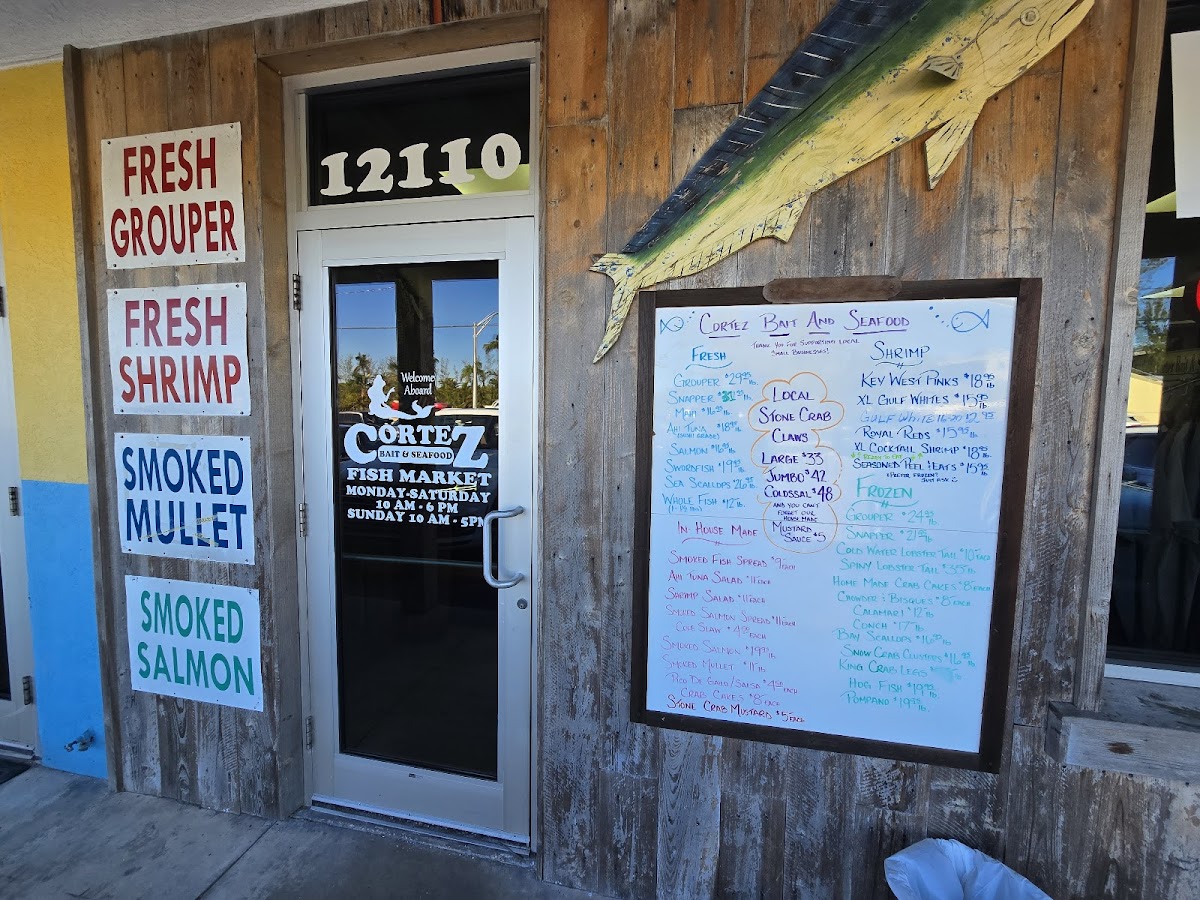 FRESH
GROUPER
FRESH
SHRIMP
SMOKED
MULLET
SMOKED
SALMON
12110
Welcome
Aboard
CORTEZ
BAIT & SEAFOOD
FISH MARKET
MONDAY-SATURDAY
10 AM - 6 PM
SUNDAY 10 AM - 5PM
CORTEZ BAIT AND SEAFOOD
THANK YOU FOR SUPPORTING LOCAL
SMALL BUSINESSES!
FRESH
GROUPER $29.95 lb.
SNAPPER $31.95 lb.
MAHI $16.95 lb.
AHI TUNA $18.95 lb
(SUSHI GRADE)
SALMON $16.95 lb.
SWORDFISH $19.95 lb.
SEA SCALLOPS $26.95 lb.
WHOLE FISH $12 lb.
LOCAL
STONE CRAB
CLAWS
LARGE $33
JUMBO $42
COLOSSAL $48
AND YOU CAN'T
FORGET OUR
HOUSE MADE
MUSTARD
SAUCE $5
IN HOUSE MADE
SMOKED FISH SPREAD $9 EACH
AHI TUNA SALAD $11 EACH
SHRIMP SALAD $11 EACH
SMOKED SALMON SPREAD $11 EACH
COLE SLAW $4.50 EACH
SMOKED SALMON $19.95 lb
SMOKED MULLET $11 lb
PICO DE GALLO/SALSA $4.50 EACH
CRAB CAKES $8 EACH
STONE CRAB MUSTARD $5 EACH
SHRIMP
KEY WEST PINKS $18.95 lb
XL GULF WHITES $15.95 lb
GULF WHITE 16-20 $12.95
ROYAL REDS $15.95 lb.
XL COCKTAIL SHRIMP $18.95 lb
SEASONED PEEL & EATS $15.95 lb
PREFER FROZEN?
JUST ASK
FROZEN
GROUPER $24.95 lb.
SNAPPER $21.95 lb.
COLD WATER LOBSTER TAIL $10 EACH
SPINY LOBSTER TAIL
HOME MADE CRAB CAKES $8 EACH
CHOWDER & BISQUES $8 EACH
CALAMARI $12 lb
CONCH $17 lb
BAY SCALLOPS $16.95 lb
SNOW CRAB CLUSTERS $16.95 lb
KING CRAB LEGS
HOG FISH $19.95 lb
POMPANO $19.95 lb.